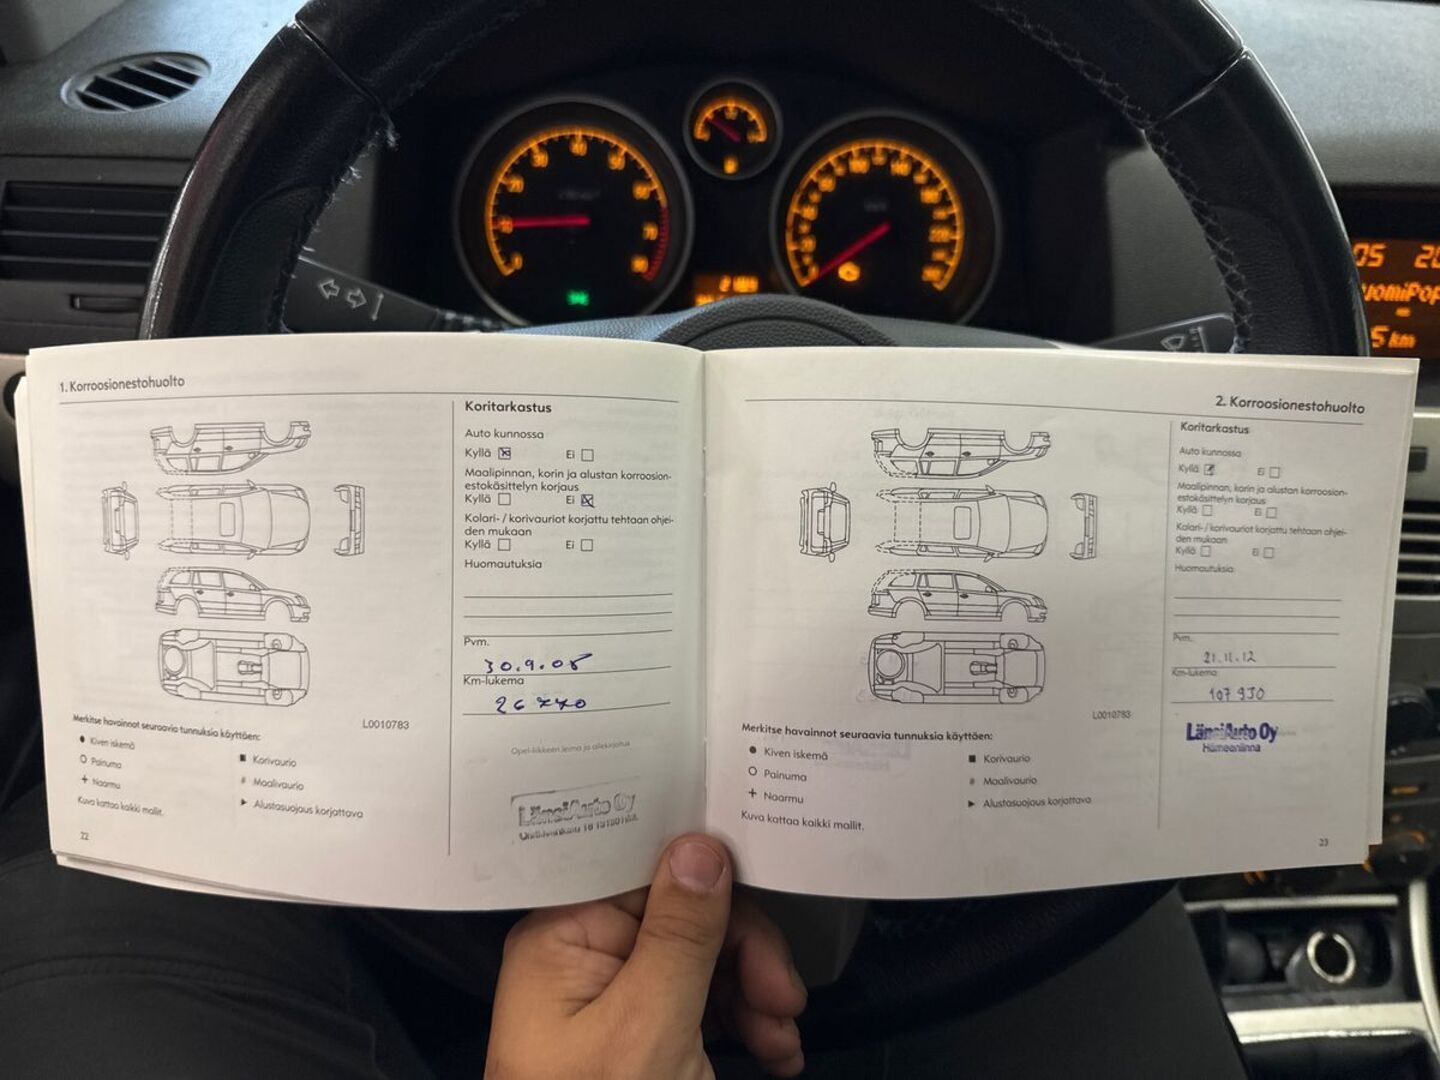 05 20
uomiPop
5 km
1. Korroosionestohuolto
Koritarkastus
Auto kunnossa
Kyllä Ei
Maalipinnan, korin ja alustan korroosion-
estokäsittelyn korjaus
Kyllä Ei
Kolari- / korivauriot korjattu tehtaan ohjei-
den mukaan
Kyllä Ei
Huomautuksia
Pvm.
30.9.08
Km-lukema
26 770
L0010783
Merkitse havainnot seuraavia tunnuksia käyttäen:
Kiven iskemä
Painuma
Naarmu
Korivaurio
Maalivaurio
Alustasuojaus korjattava
Kuva kattaa kaikki mallit.
Opel-liikkeen leima ja allekirjoitus
LänsiAuto Oy
22
2. Korroosionestohuolto
Koritarkastus
Auto kunnossa
Kyllä Ei
Maalipinnan, korin ja alustan korroosion-
estokäsittelyn korjaus
Kyllä Ei
Kolari- / korivauriot korjattu tehtaan ohjei-
den mukaan
Kyllä Ei
Huomautuksia
Pvm.
21.11.12
Km-lukema
107 930
LänsiAuto Oy
Hämeenlinna
L0010783
Merkitse havainnot seuraavia tunnuksia käyttäen:
Kiven iskemä
Painuma
Naarmu
Korivaurio
Maalivaurio
Alustasuojaus korjattava
Kuva kattaa kaikki mallit.
23